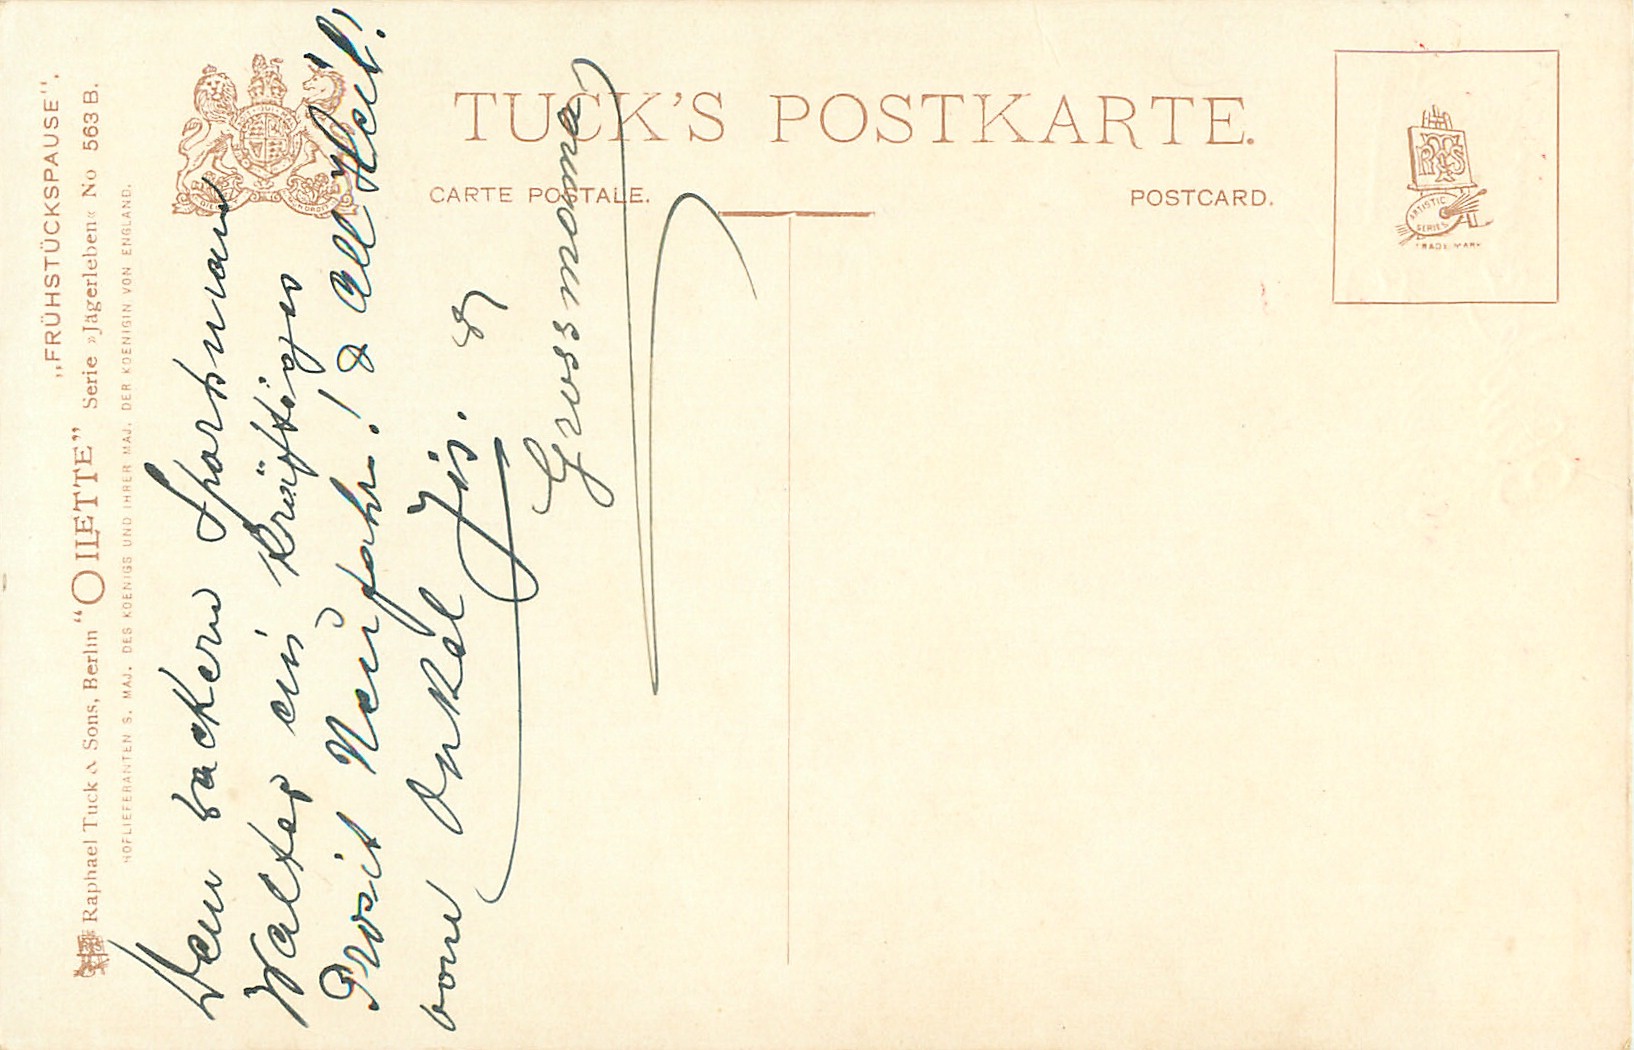 „FRÜHSTÜCKSPAUSE".
Raphael Tuck & Sons, Berlin “OILETTE” Serie »Jägerleben« No 563 B.
HOFLIEFERANTEN S. MAJ. DES KOENIGS UND IHRER MAJ. DER KOENIGIN VON ENGLAND.
TUCK'S POSTKARTE.
CARTE POSTALE.
POSTCARD.
ARTISTIC
SERIES
TRADE MARK
Dem wackern Sportsman
Walter ein kräftiges
Prosit Neujahr! & All Heil!
vom Onkel &
Grossmama